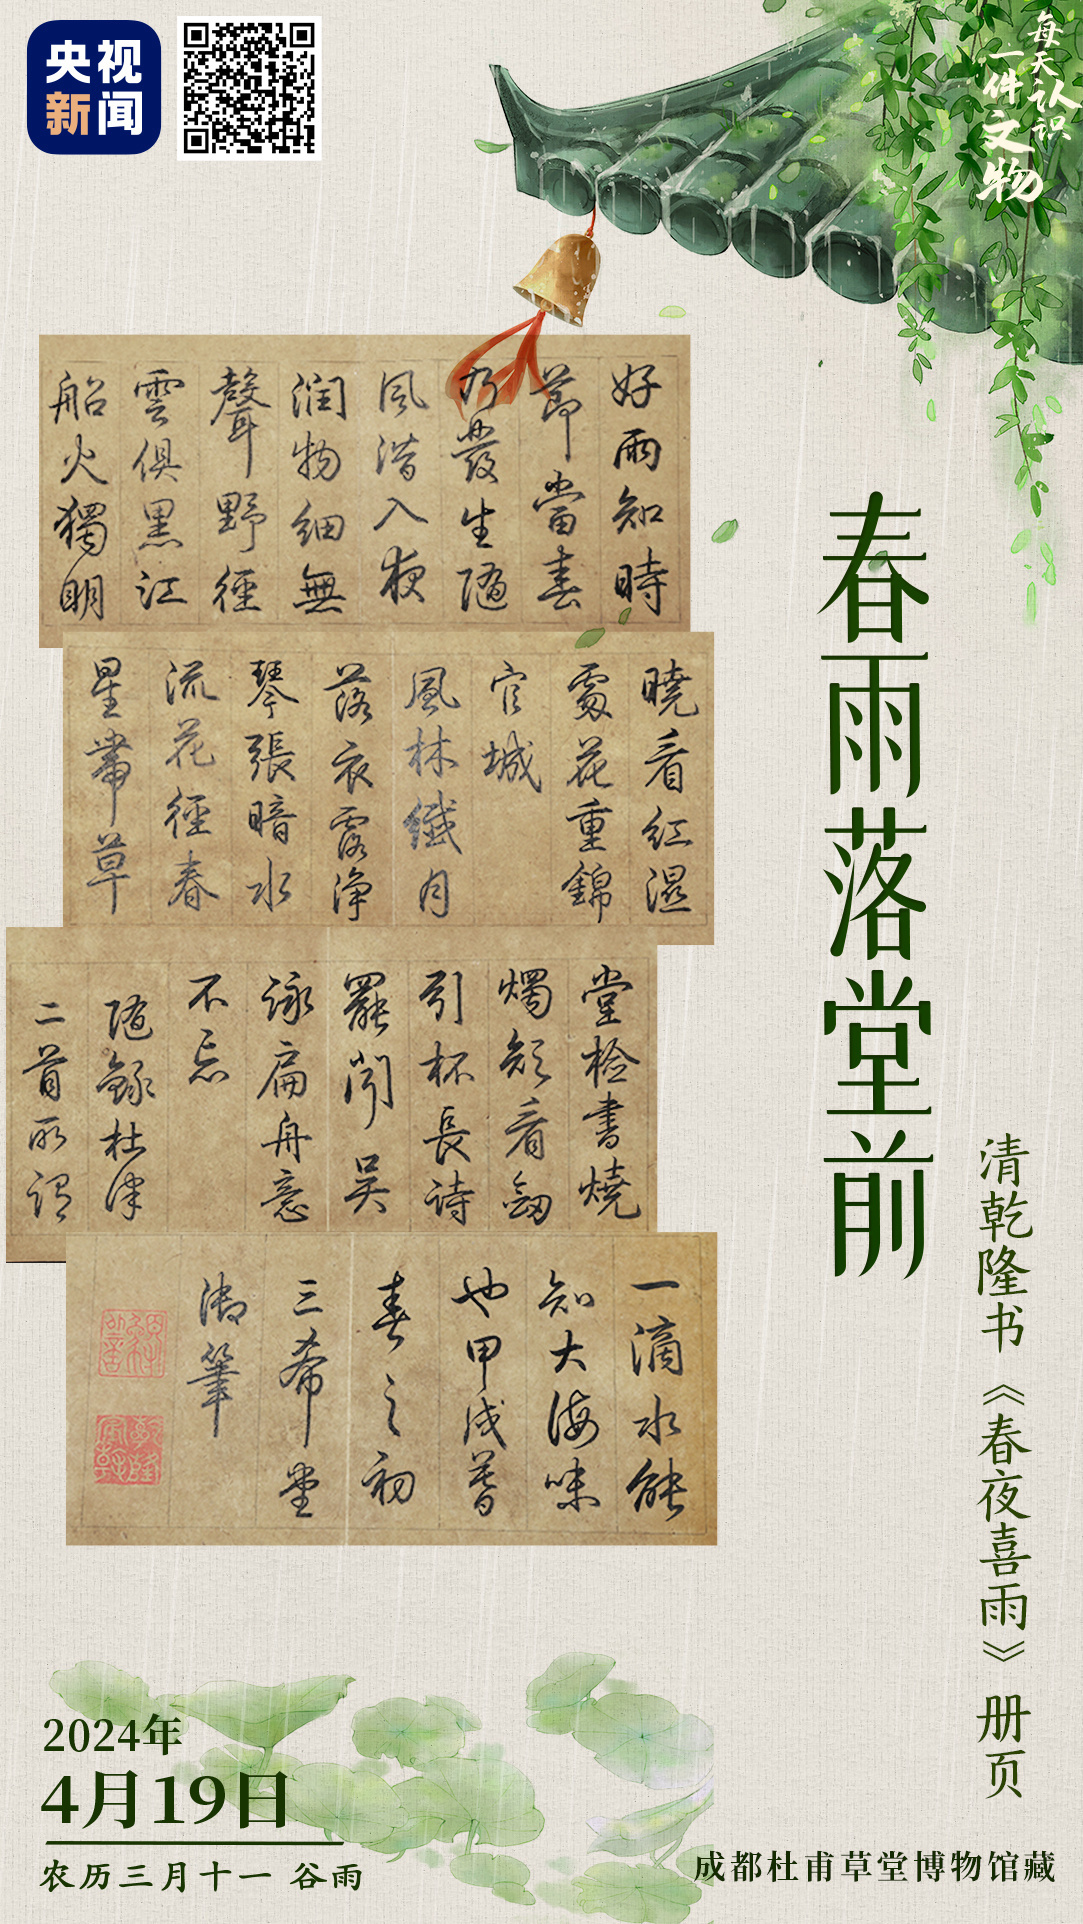 央视
新闻
每天认识
一件文物
好雨知時
節當春
乃發生隨
風潛入夜
润物细無
聲野徑
雲俱黒江
船火獨明
曉看紅濕
處花重錦
官城
風林纖月
落衣露浄
琴張暗水
流花徑春
星帶草
堂檢書燒
燭短看劒
引杯長詩
罷聞吴
詠扁舟意
不忘
隨錄杜律
二首所謂
一滴水能
知大海味
也甲戌暮
春之初
三希堂
御筆
春雨落堂前
清乾隆书《春夜喜雨》册页
2024年
4月19日
农历三月十一 谷雨
成都杜甫草堂博物馆藏